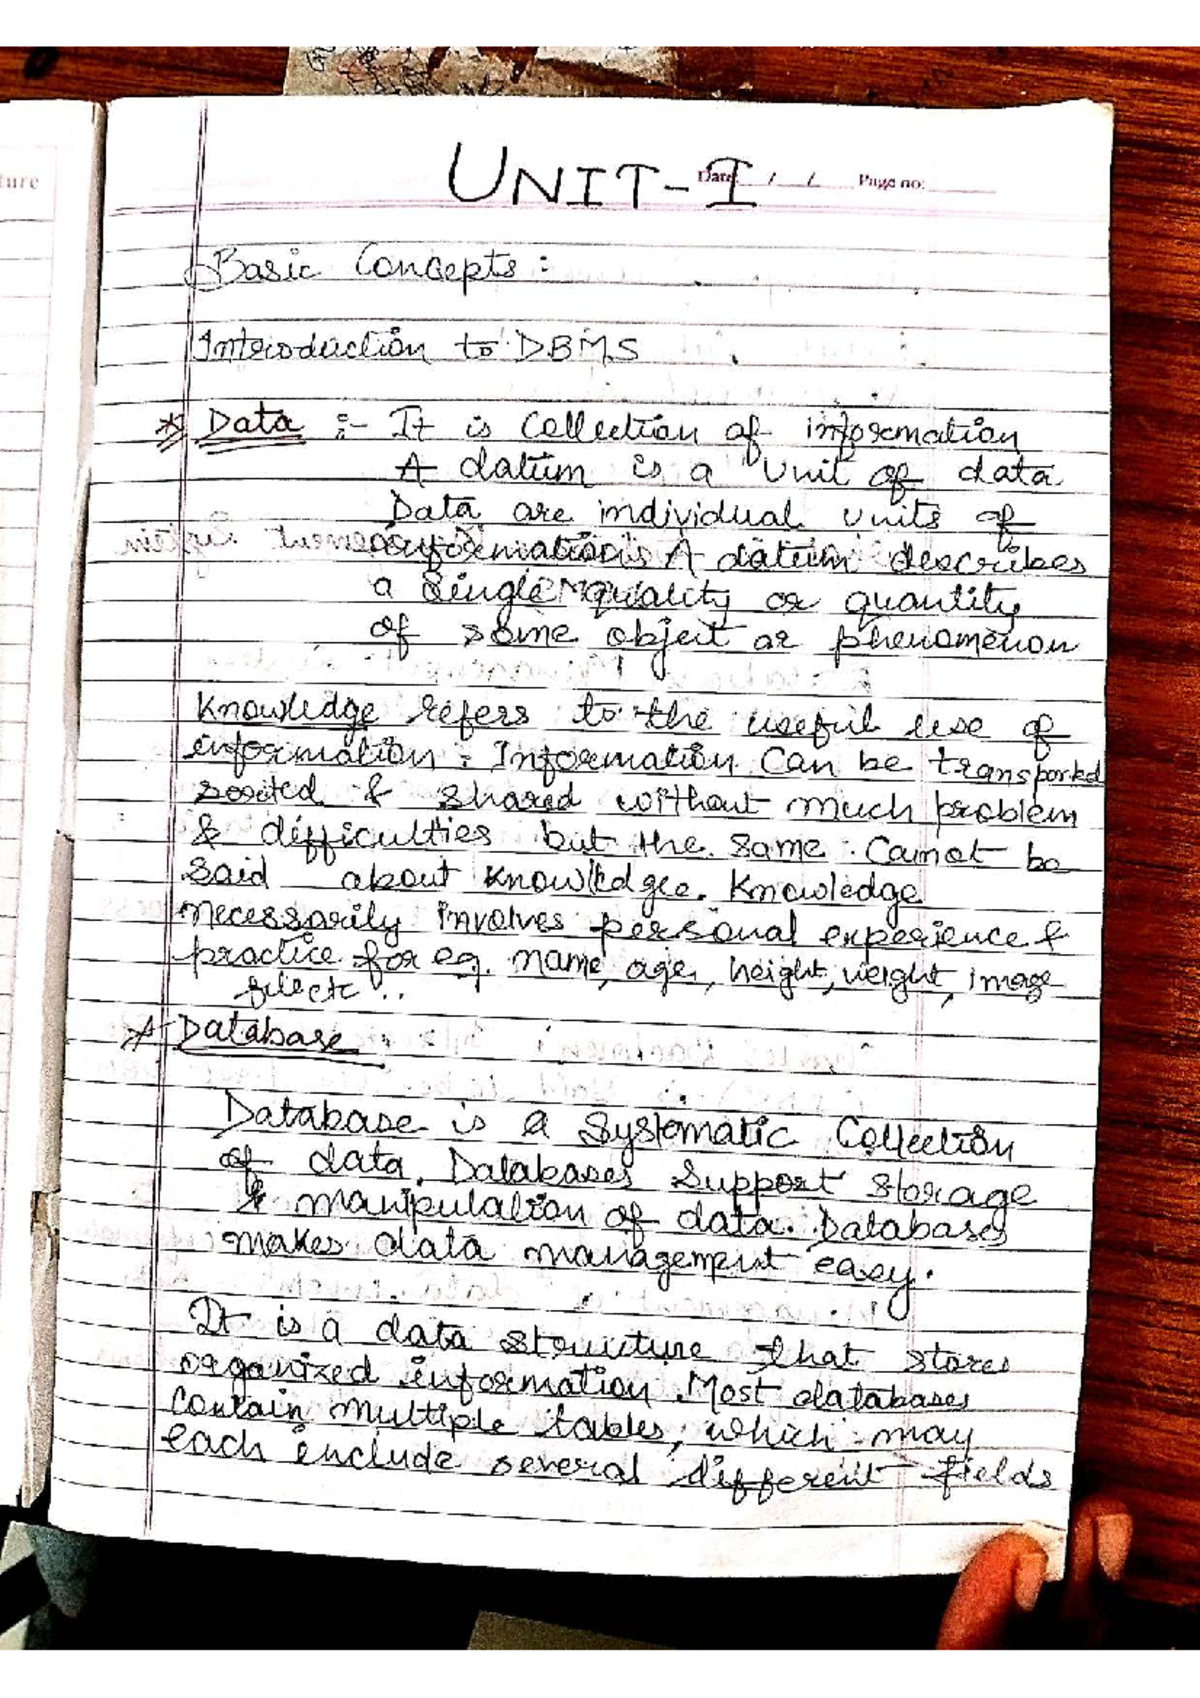 ture
UNIT-I
Date / / Page no:
Basic Concepts :
Introduction to DBMS
* Data :- It is Collection of information
A datum is a Unit of data
Data are individual units of
information. A datum describes
a Single quality or quantity
of some object or phenomenon
Knowledge refers to the useful use of
information. Information Can be transported
sorted & shared without much problem
& difficulties but the same Cannot be
said about knowledge. Knowledge
necessarily involves personal experience &
practice for eg. name, age, height, weight, image
file etc ..
* Database
Database is a Systematic Collection
of data. Databases Support storage
& manipulation of data. Databases
makes data management easy.
It is a data structure that stores
organized information Most databases
Contain multiple tables, which may
each include several different fields